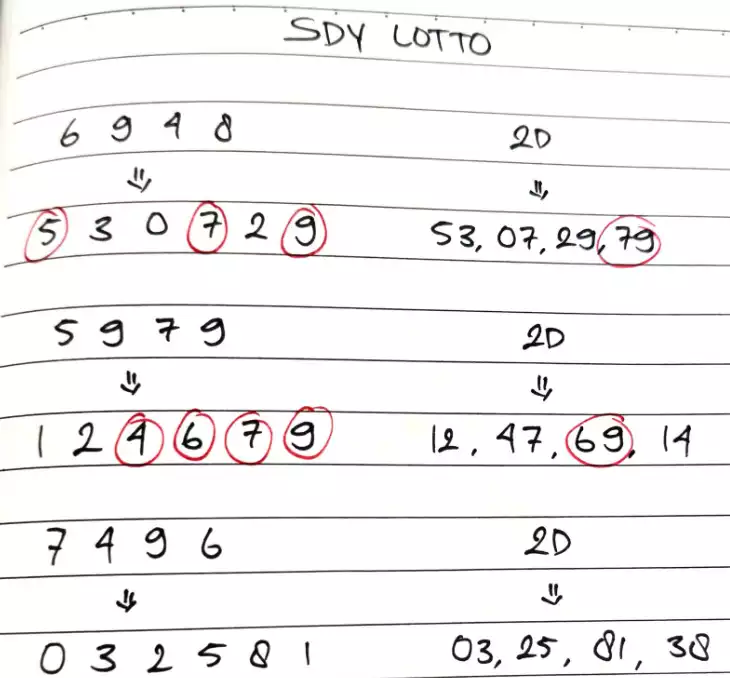 SDY LOTTO
6 9 4 8 2D
⇓ ⇓
5 3 0 7 2 9 53, 07, 29, 79
5 9 7 9 2D
⇓ ⇓
1 2 4 6 7 9 12, 47, 69, 14
7 4 9 6 2D
⇓ ⇓
0 3 2 5 8 1 03, 25, 81, 38